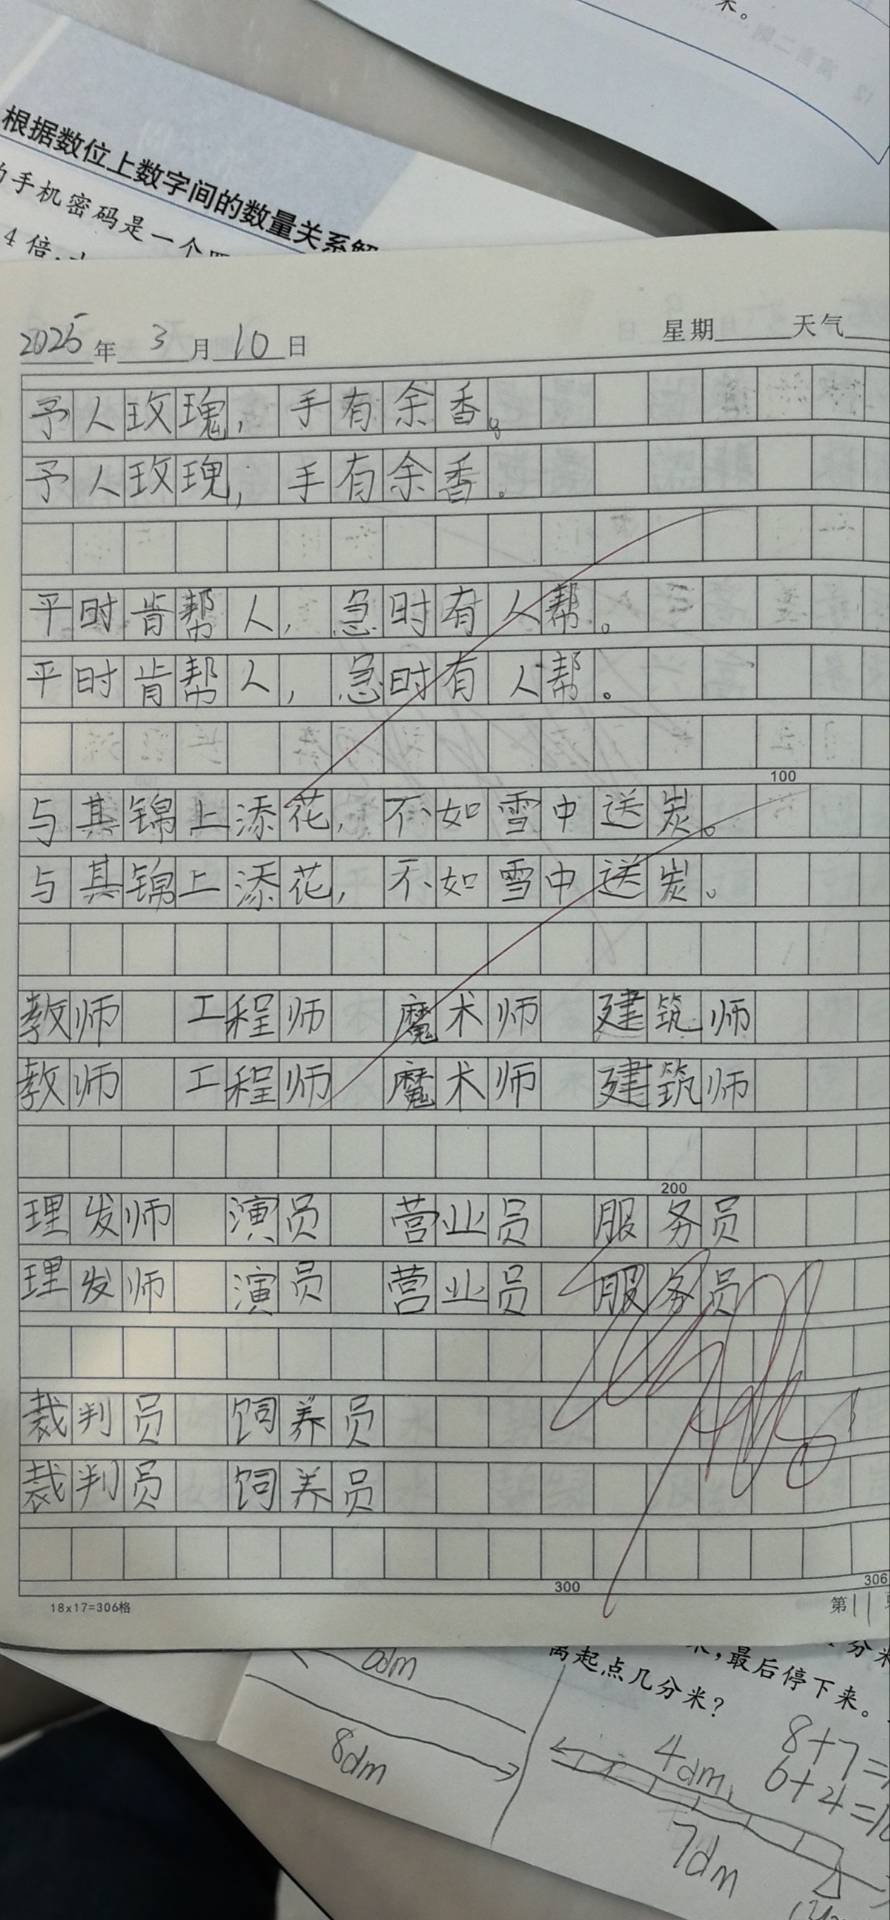 米。
根据数位上数字间的数量关系解
的手机密码是一个四
4倍,
2025年 3 月 10 日 星期 天气
予人玫瑰,手有余香。
予人玫瑰,手有余香。
平时肯帮人,急时有人帮。
平时肯帮人,急时有人帮。
100
与其锦上添花,不如雪中送炭。
与其锦上添花,不如雪中送炭。
教师 工程师 魔术师 建筑师
教师 工程师 魔术师 建筑师
200
理发师 演员 营业员 服务员
理发师 演员 营业员 服务员
裁判员 饲养员
裁判员 饲养员
300
306
18x17=306格
第11
分米
,最后停下来。
离起点几分米?
6dm
8dm
4dm
7dm
8+7=
6+4=10